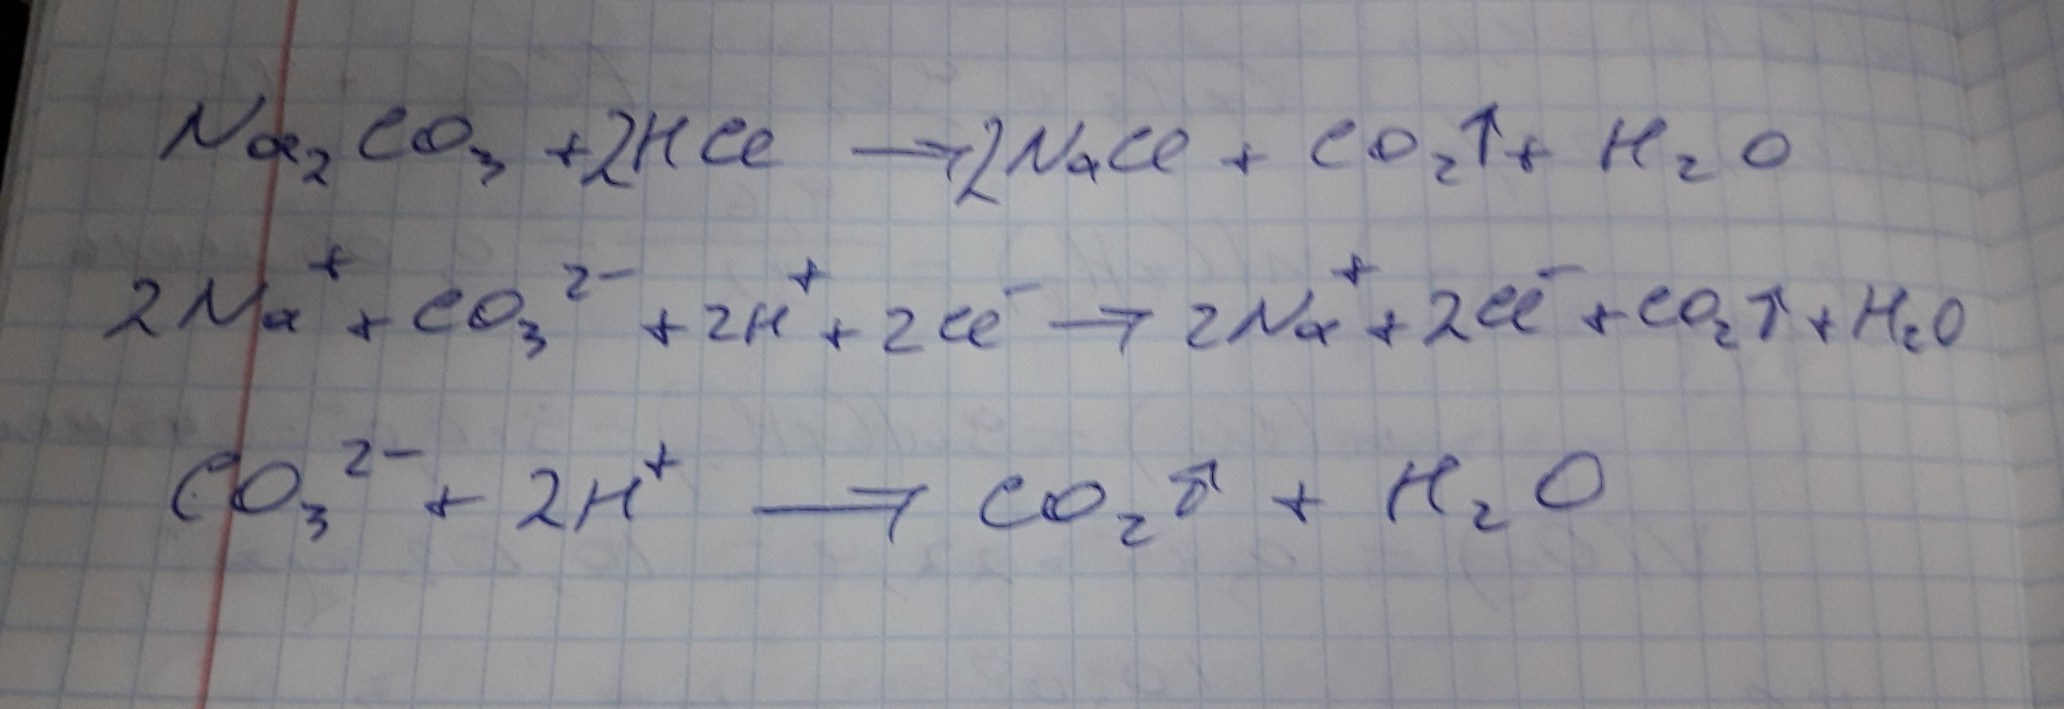 Na₂CO₃ + 2HCl → 2NaCl + CO₂↑ + H₂O
2Na⁺ + CO₃²⁻ + 2H⁺ + 2Cl⁻ → 2Na⁺ + 2Cl⁻ + CO₂↑ + H₂O
CO₃²⁻ + 2H⁺ → CO₂↑ + H₂O